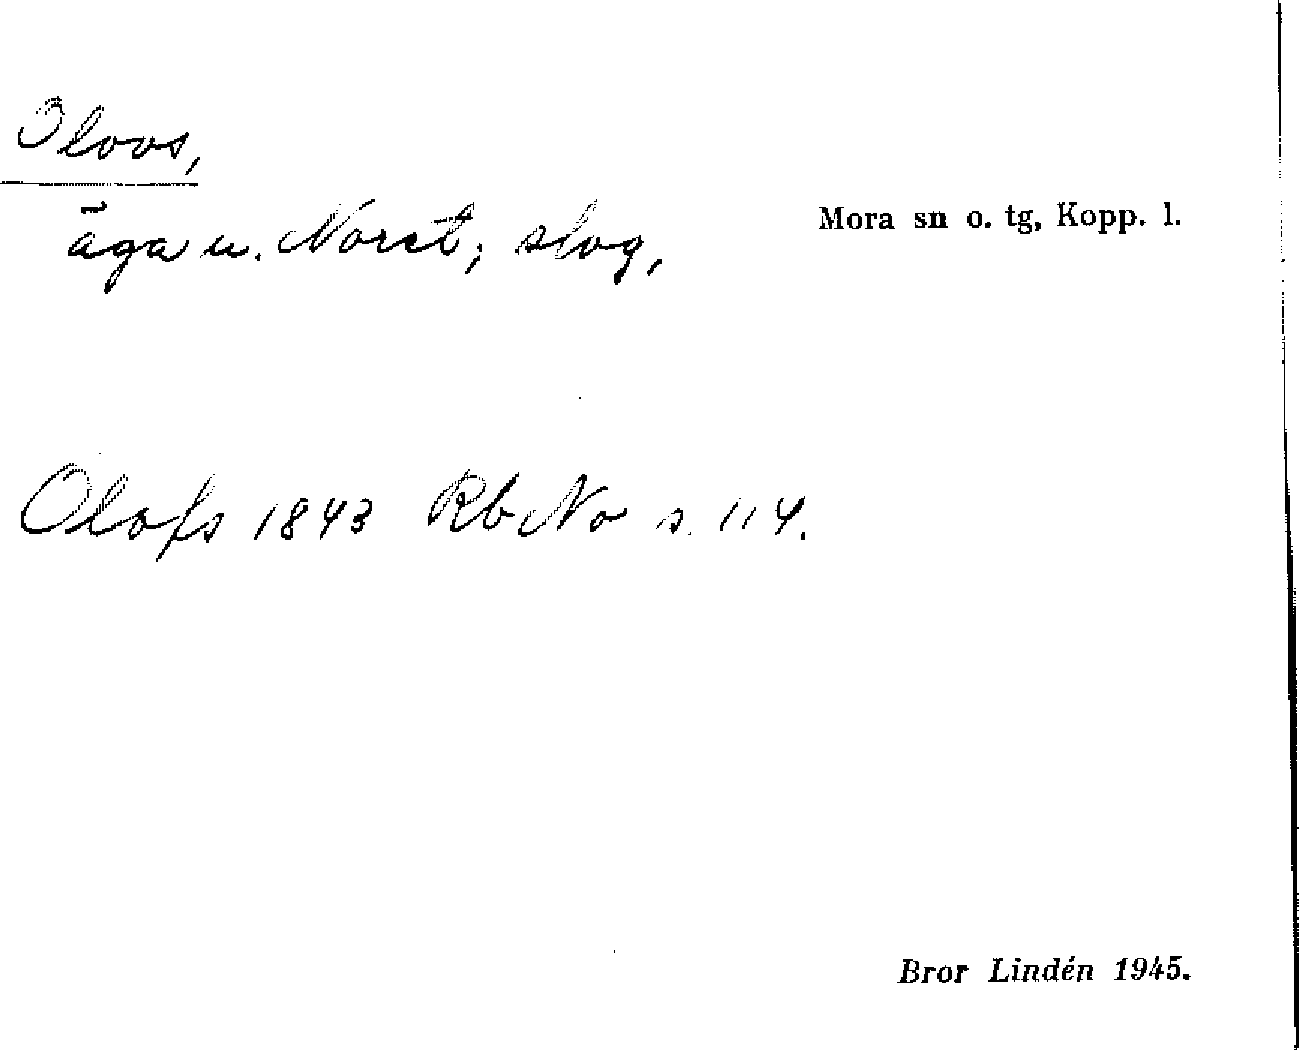 Oloos,
Mora sn o. tg, Kopp. l.
äga u. Noret, slog,
Olofs 1843 Rb No s. 114.
Bror Lindén 1945.